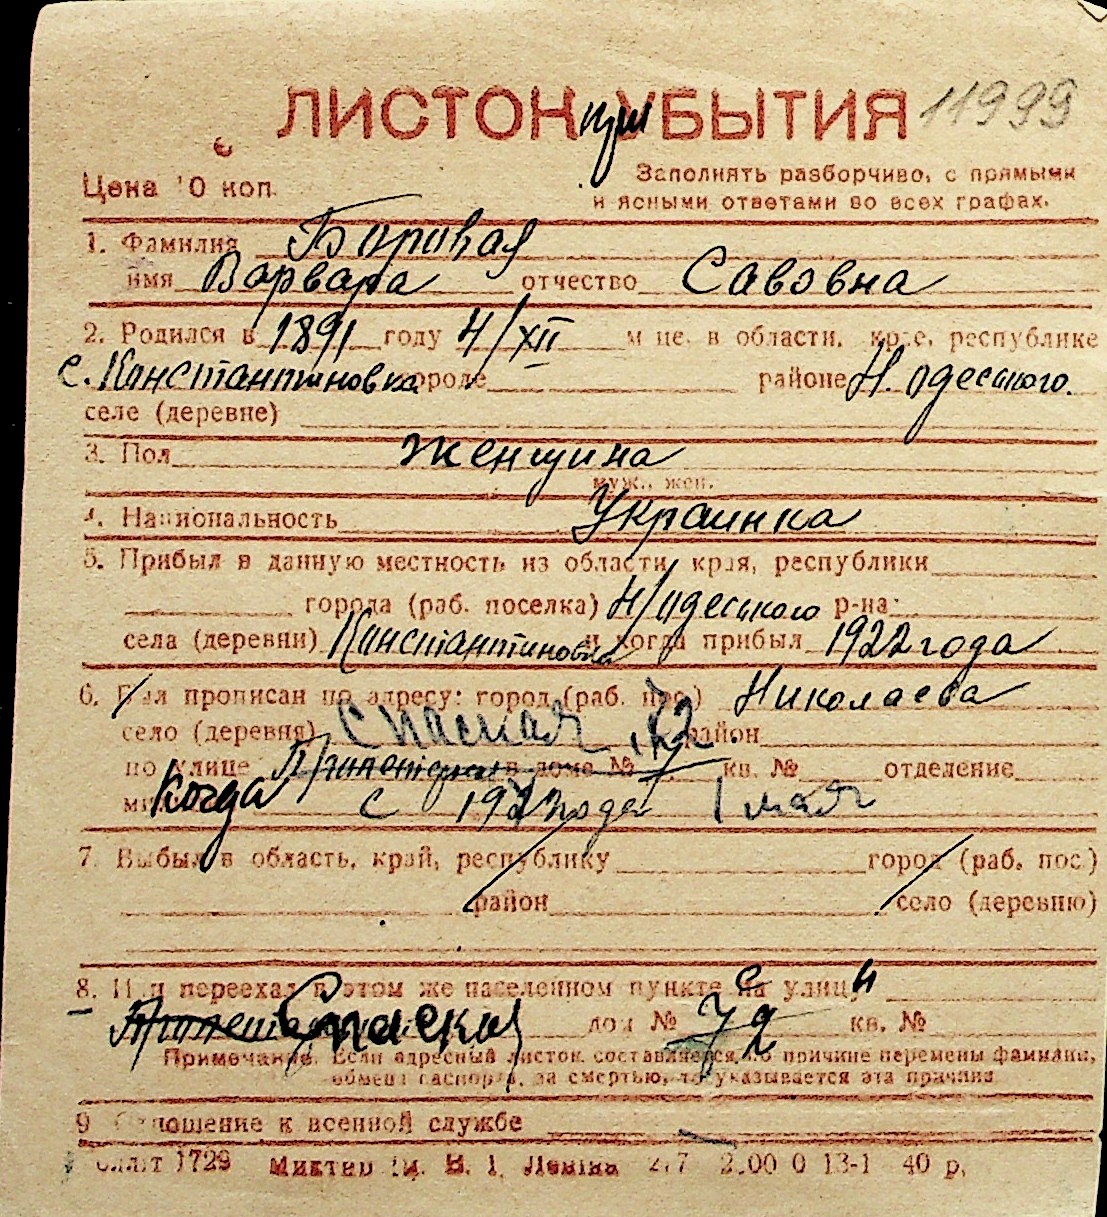 ЛИСТОК при УБЫТИЯ 11999
Цена 10 коп.
Заполнять разборчиво, с прямыми
и ясными ответами во всех графах.
1. Фамилия Боровая
имя Варвара отчество Савовна
2. Родился в 1891 году 4/XII м-це, в области, крае, республике
с. Константиновка городе районе Н. одеського.
селе (деревне)
3. Пол женщина
муж., жен.
4. Национальность Украинка
5. Прибыл в данную местность из области, края, республики
города (раб. поселка) Н/одеського р-на
села (деревни) Константиновка и когда прибыл 1922 года
6. Был прописан по адресу: город (раб. пос.) Николаева
село (деревня) Спаская 72 район
по улице в доме № 7 кв. № отделение
Когда с 1922 года 1 мая
7. Выбыл в область, край, республику город (раб. пос.)
район село (деревню)
8. Или переехал в этом же населенном пункте с улицы
Спаская дом № 72 кв. №
Примечание. Если адресный листок составляется по причине перемены фамилии,
обмена паспорта, за смертью, то указывается эта причина
9. Отношение к военной службе
1729 Леніна 2,00 0 13-1 40 р,